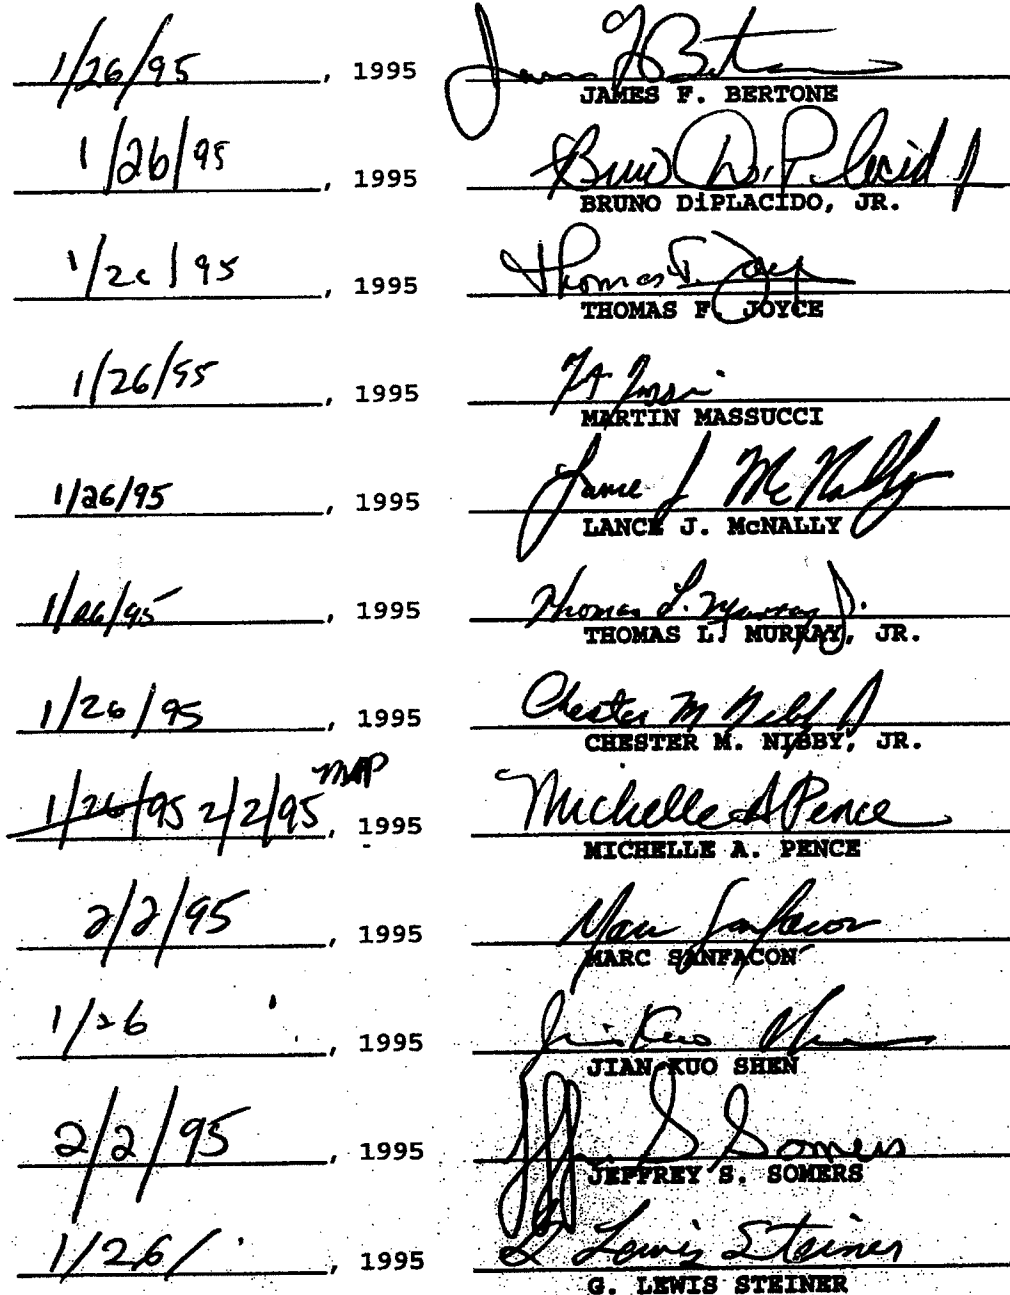 1/26/95, 1995 James F Bertone
JAMES F. BERTONE
1/26/95, 1995 Bruno DiPlacido Jr
BRUNO DiPLACIDO, JR.
1/26/95, 1995 Thomas F. Joyce
THOMAS F. JOYCE
1/26/95, 1995
MARTIN MASSUCCI
1/26/95, 1995 Lance J McNally
LANCE J. McNALLY
1/26/95, 1995 Thomas L. Murray Jr.
THOMAS L. MURRAY, JR.
1/26/95, 1995 Chester M Nibby Jr
CHESTER M. NIBBY, JR.
MAP
1/26/95 2/2/95, 1995 Michelle A Pence
MICHELLE A. PENCE
2/2/95, 1995 Marc Sanfacon
MARC SANFACON
1/26, 1995 Jian Kuo Shen
JIAN KUO SHEN
2/2/95, 1995 Jeffrey S Somers
JEFFREY S. SOMERS
1/26/, 1995 G Lewis Steiner
G. LEWIS STEINER